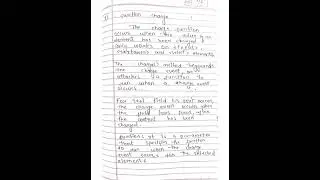 function change :
The change function
occurs when the value of an
element has been changed it
only works on <input>,
<textarea> and <select> elements.
The change() method
the change event, or
attaches a function to
run when a change event
occurs
For text field
the change event occurs after
the field loses
the content has been
changed
function it is a parameter
that specifies the function
to run when the change
event occurs for the selected
elements